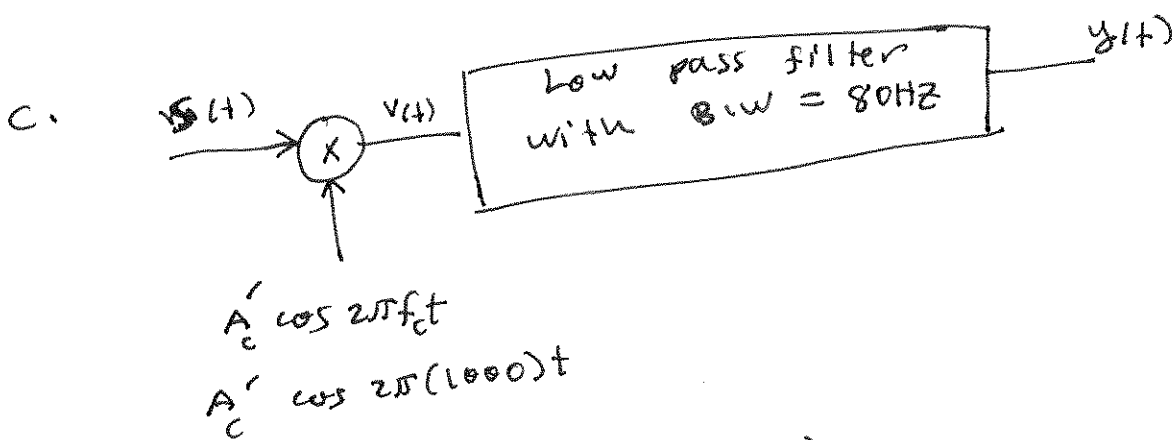 C.
s(t)
X
v(t)
Low pass filter
with B.W = 80HZ
y(t)
A'c cos 2πfct
A'c cos 2π(1000)t